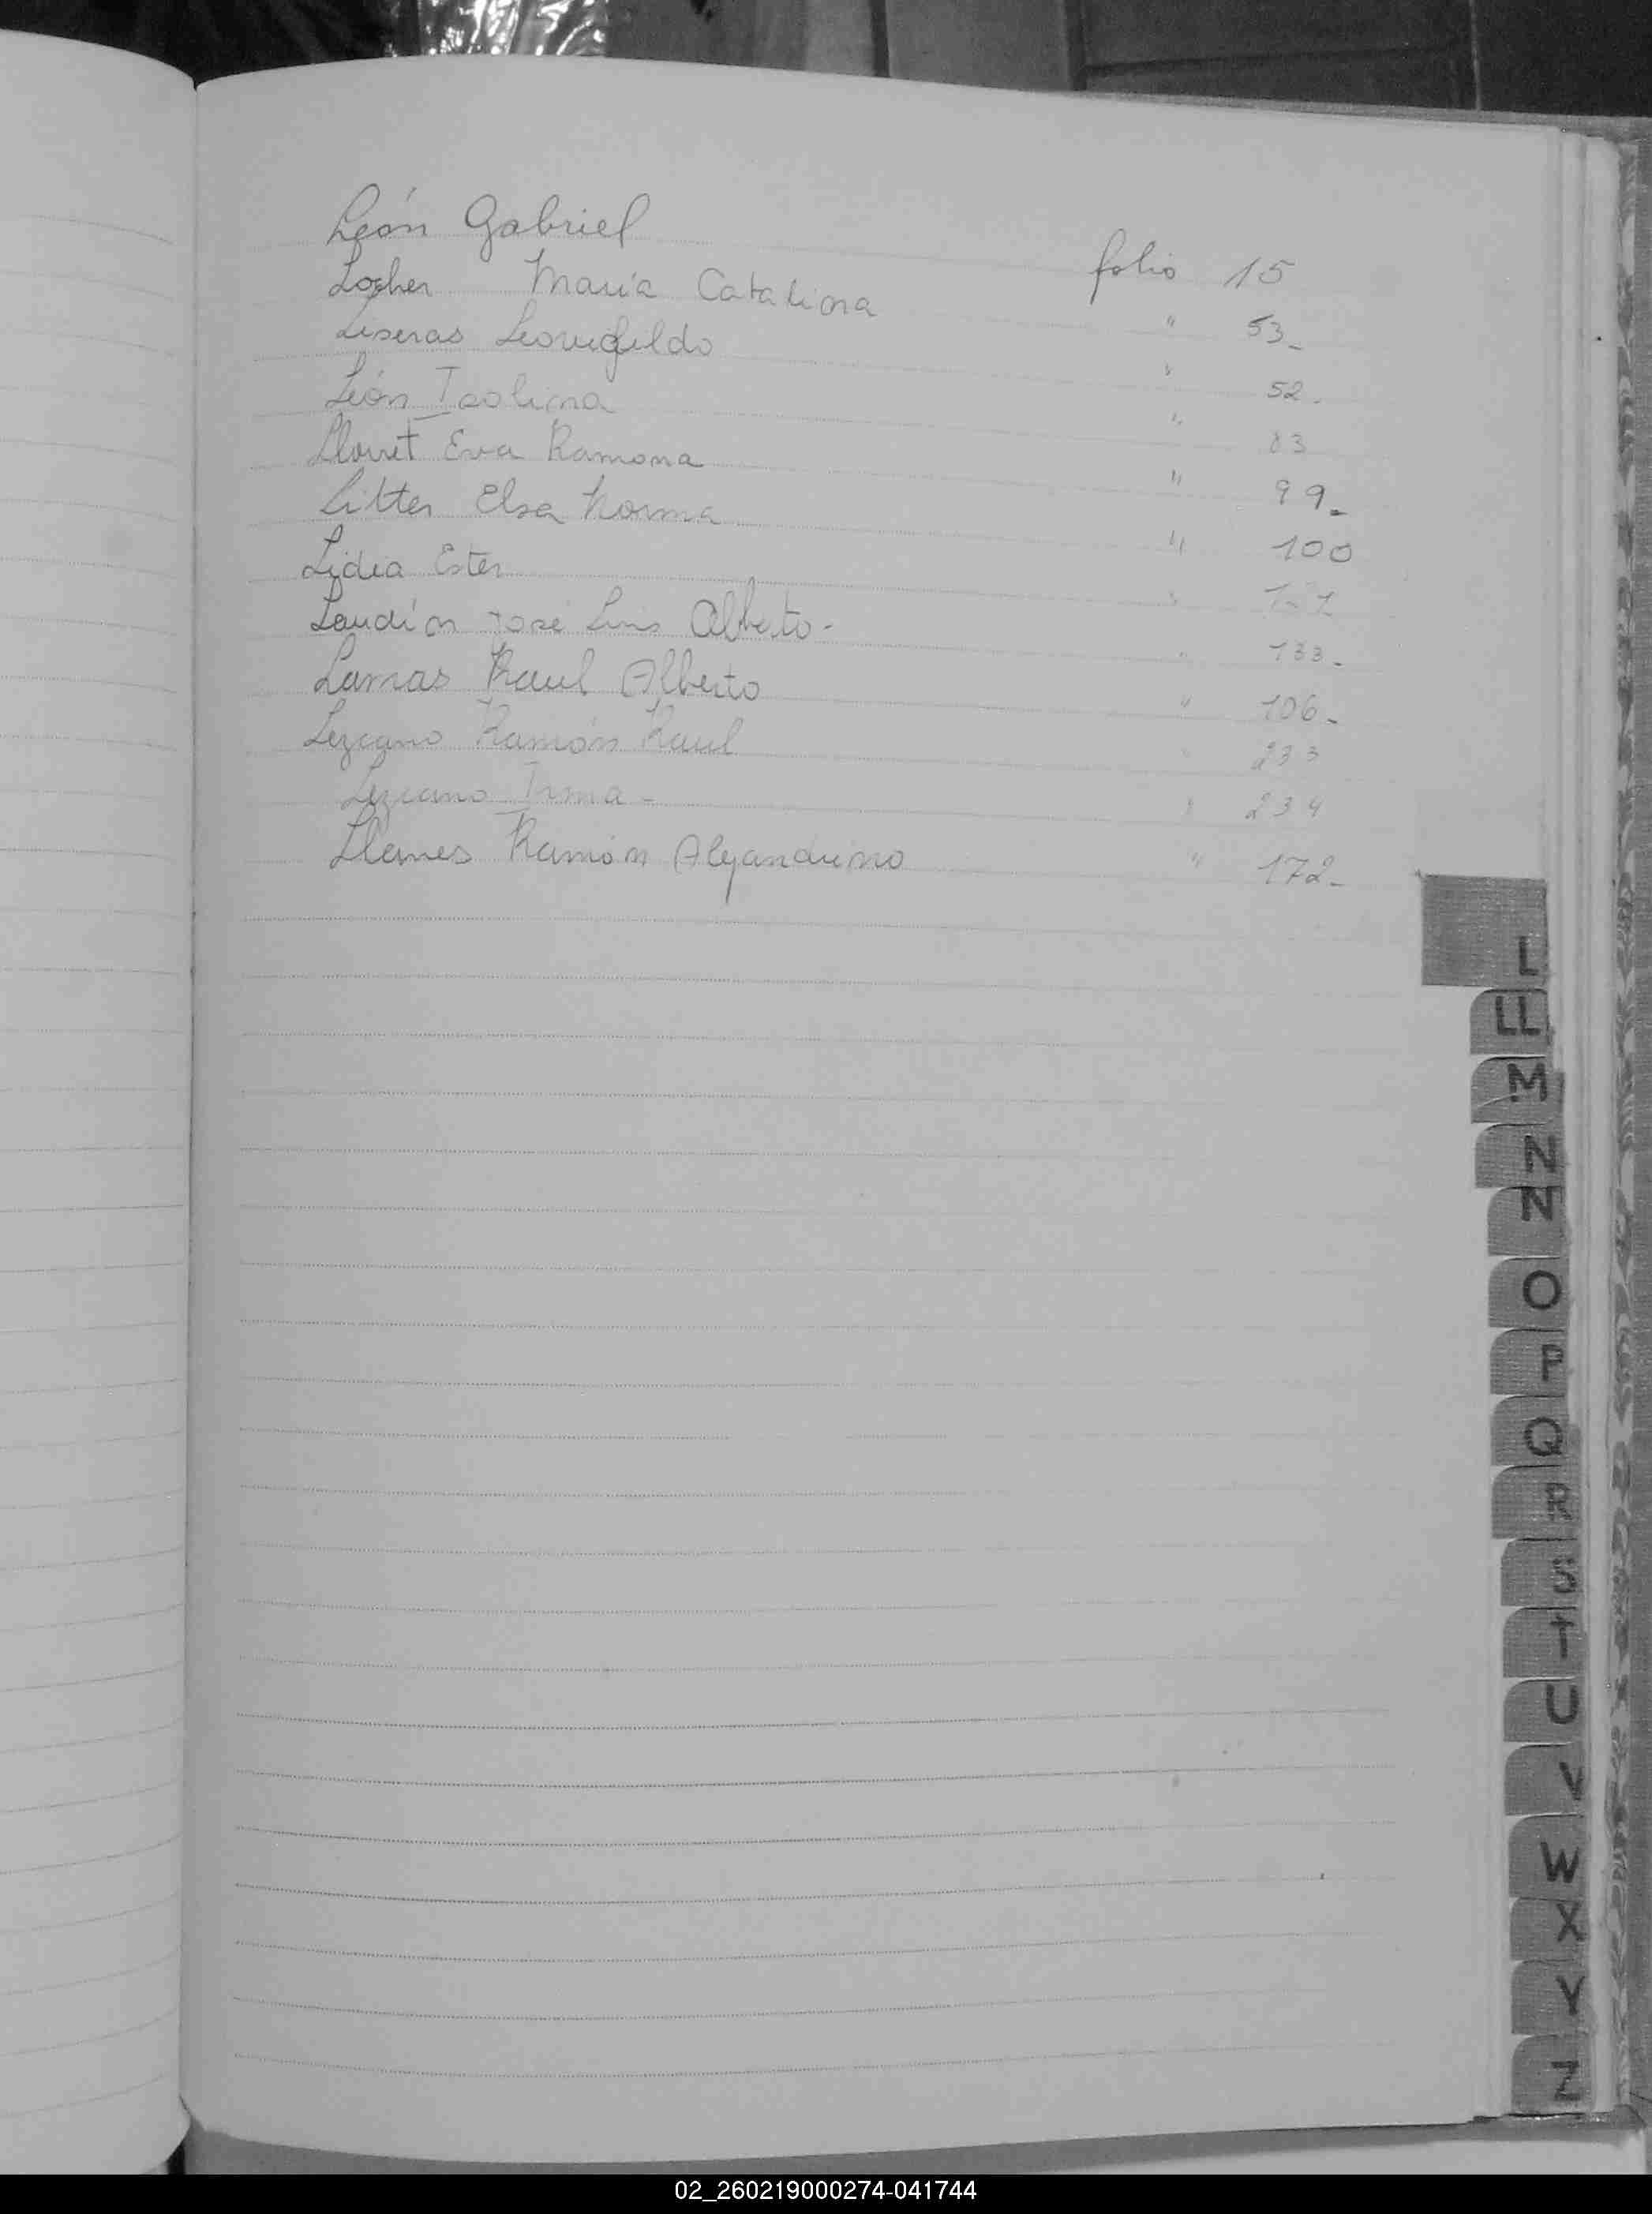 León Gabriel folio 15
Locher María Catalina " 53_
Liseras Leovigildo " 52.
León Isolina " 83
Lloret Eva Ramona " 99_
Litter Elsa Norma " 100
Lidia Ester "
Laudin José Luis Alberto- " 133_
Lamas Raul Alberto " 106_
Lezcano Ramón Raul " 233
Lezcano Irma - " 234
Llanes Ramón Alejandrino " 172_
L
LL
M
N
N
O
P
Q
R
S
T
U
V
W
X
Y
Z
02_260219000274-041744